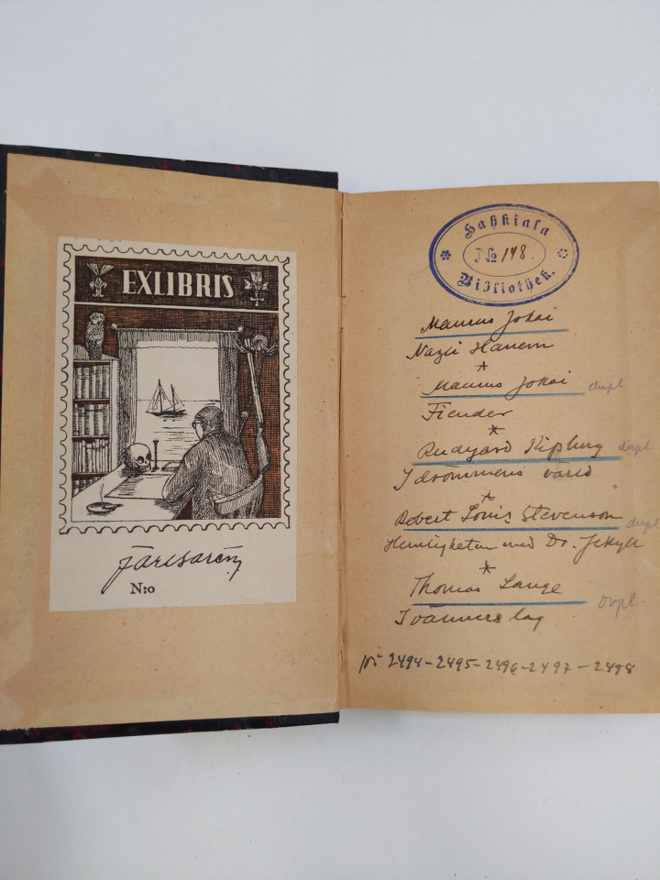 EXLIBRIS
N:o
Hahkiala
No 148.
Bibliothek.
Maurus Jokai
Hanem
*
Maurus Jokai dupl
Fiender
*
Rudyard Kipling dupl
I drömmens värld
*
Robert Louis Stevenson dupl
Hemligheten med Dr. Jekyll
*
Thomas Lange dupl.
I vänners lag
2494-2495-2496-2497-2498